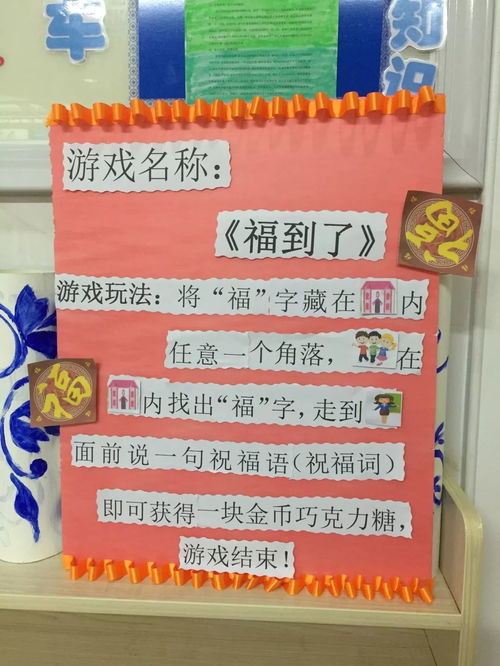 车
知识
游戏名称：
《福到了》
游戏玩法：将“福”字藏在内
任意一个角落，在
内找出“福”字，走到
面前说一句祝福语（祝福词）
即可获得一块金币巧克力糖，
游戏结束！
福
福